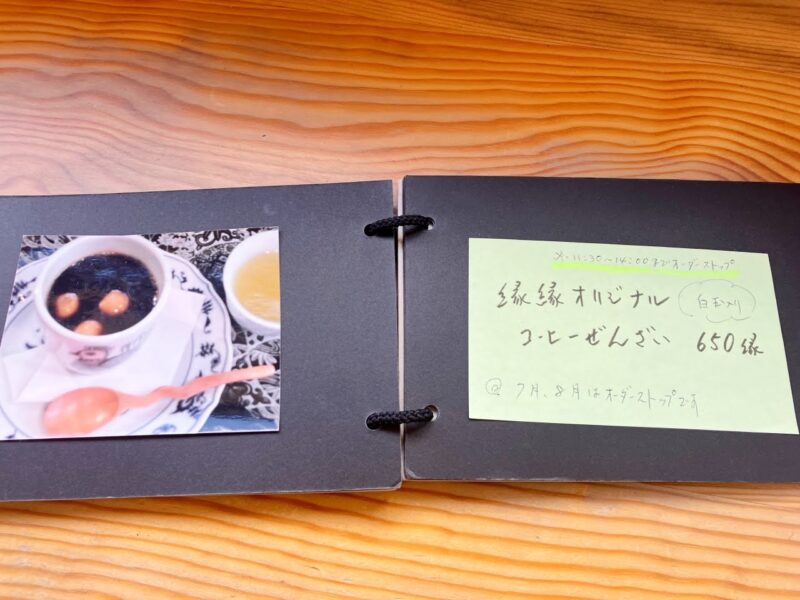 ※11:30〜14:00までオーダーストップ
縁縁オリジナル
白玉入り
コーヒーぜんざい 650縁
@ 7月、8月はオーダーストップです